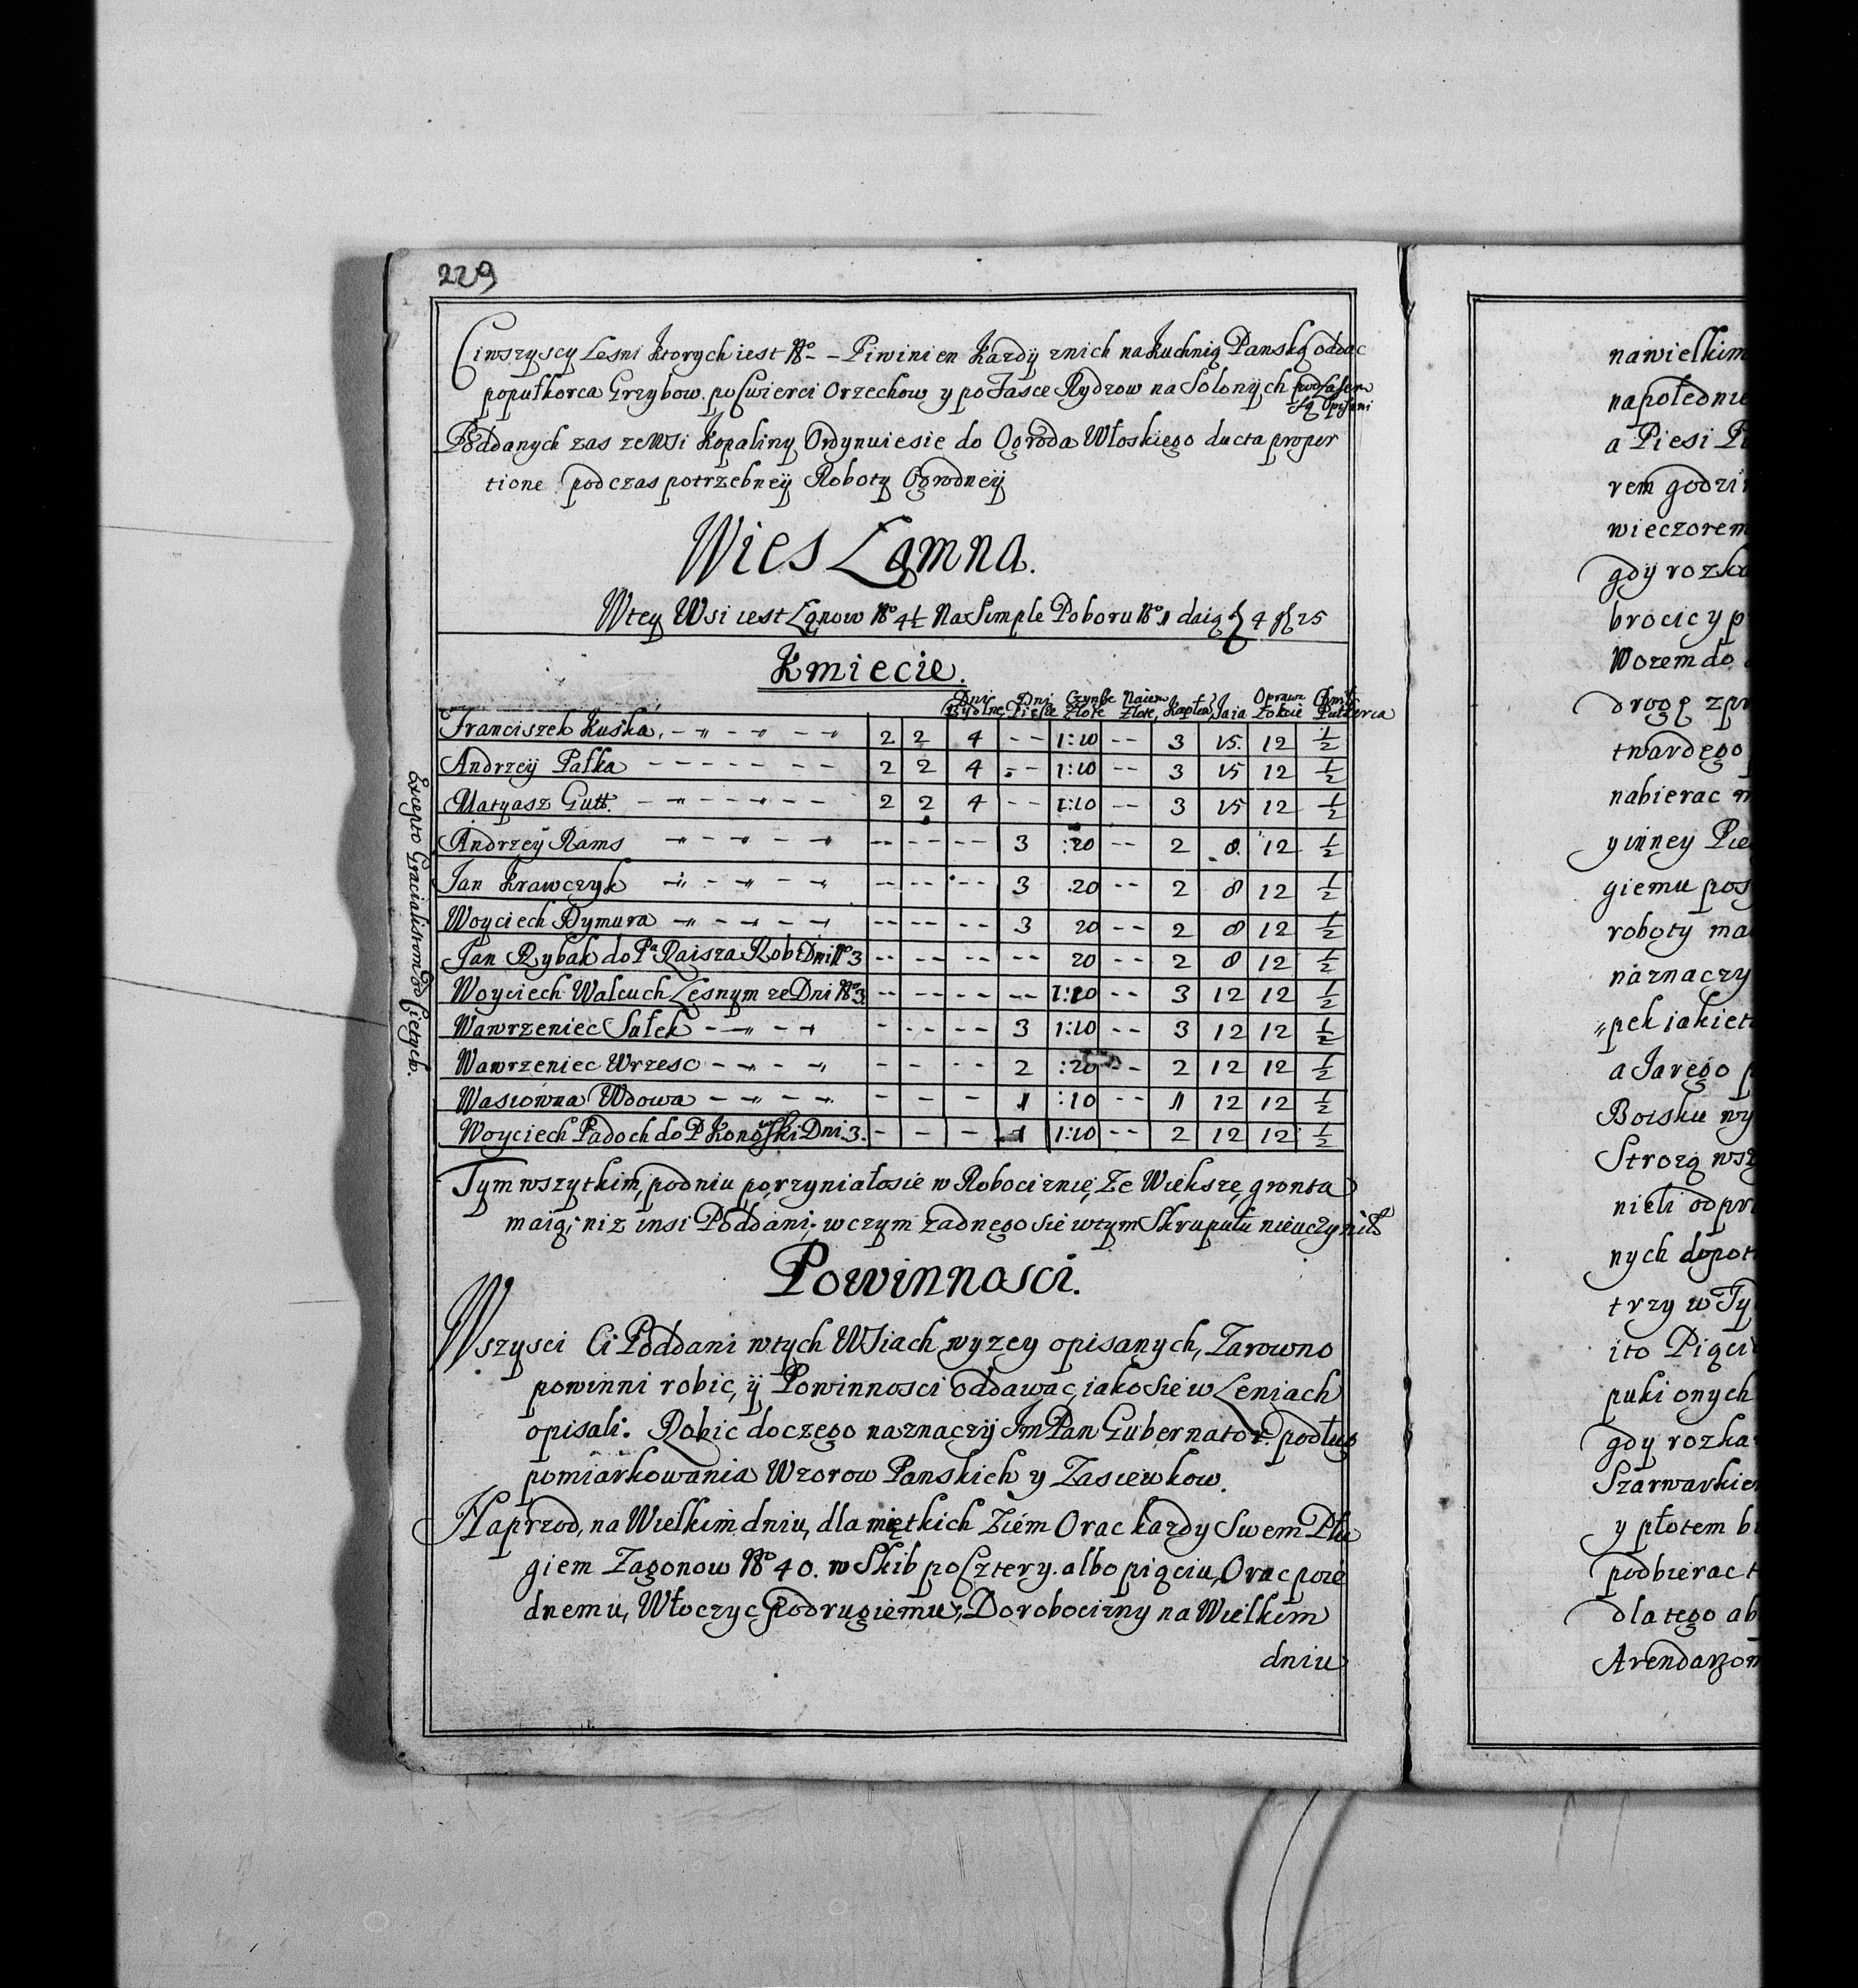 229
Ci wszyscy Lesni ktorych iest No – Piwinien kazdÿ znich na kuchnią Panską oddac
popułkorca Grzybow. po Cwierci Orzechow y po Fasce Rydzow na Solonÿch
są Opisani
Poddanych zas ze Wsi Kopaliny Ordynuiesie do Ogroda Włoskiego ducta propor
tione podczas potrzebneÿ Roboty Ogrodneÿ
Wies Łąmna.
Wtey Wsi iest Łąnow No 4½ Na Simple Poboru No 1 daią 4 25
Kmiecie.
Dni Bydlne Dni Piesze Czynsze Złote Naiem Złote Kapłon Jaia Oprawa Łokcie Chmil Pułkorca
Franciszek Kuska 2 2 4 -- 1:10 -- 3 15. 12 ½
Andrzeÿ Pałka 2 2 4 -- 1:10 -- 3 15 12 ½
Matyasz Gutt. 2 2 4 -- 1:10 -- 3 15 12 ½
Andrzeÿ Rams -- -- -- 3 :20 -- 2 8. 12 ½
Jan Krawczyk -- -- -- 3 .20 -- 2 8 12 ½
Woyciech Dymura -- -- -- 3 20 -- 2 8 12 ½
Jan Rybak do Pa Raisza Robi Dni No 3 -- -- -- -- 20 -- 2 8 12 ½
Woyciech Walcuch Lesnym ze Dni No 3. -- -- -- -- 1:10 -- 3 12 12 ½
Wawrzeniec Sałek - - -- 3 1:10 -- 3 12 12 ½
Wawrzeniec Wrzesc - - -- 2 :20 -- 2 12 12 ½
Wasiowna Wdowa - - - 1 :10 -- 1 12 12 ½
Woyciech Padoch do P Konoskÿ Dni 3. - - - 1 1:10 -- 2 12 12 ½
Excepto Gracialistom od Cietych.
Tym wszytkim, podniu porzyniałosie w Robociznie, Ze Wieksze gronta
maią, niz insi Poddani; w czym zadnego sie wtym Skrupułu nieuczynił
Powinnosci.
Wszysci Ci Poddani wtych Wsiach wyzey opisanych, Zarowno
powinni robic, ÿ Powinnosci oddawac, iako sie w Leniach
opisali: Robic do czego naznaczÿ Jm Pan Gubernator podług
pomiarkowania Wzorow Panskich y Zasiewkow.
Naprzod, na Wielkim dniu, dla miętkich Ziem Orac kazdy Swem Płu
giem Zagonow No 40. w Skib po Cztery. albo pięciu, Orac poie
dnemu, Włoczyc podrugiemu, Do robocizny na Wielkim
dniu
nawielkim
napołednie
a Piesi
rem godzi
wieczorem
gdÿ rozka
brocic y p
Wozem do
drogę zpr
twardego
nabierac
y inney Pie
giemu pos
roboty ma
naznaczy
pek iakie
a Jarego
Boisku wy
Strozą wsz
nieli odpr
nych dopot
trzy w Ty
ito Pięci
puki onych
gdy rozka
Szarwarkie
y płotem
podbierac
dla tego ab
Arendarzom